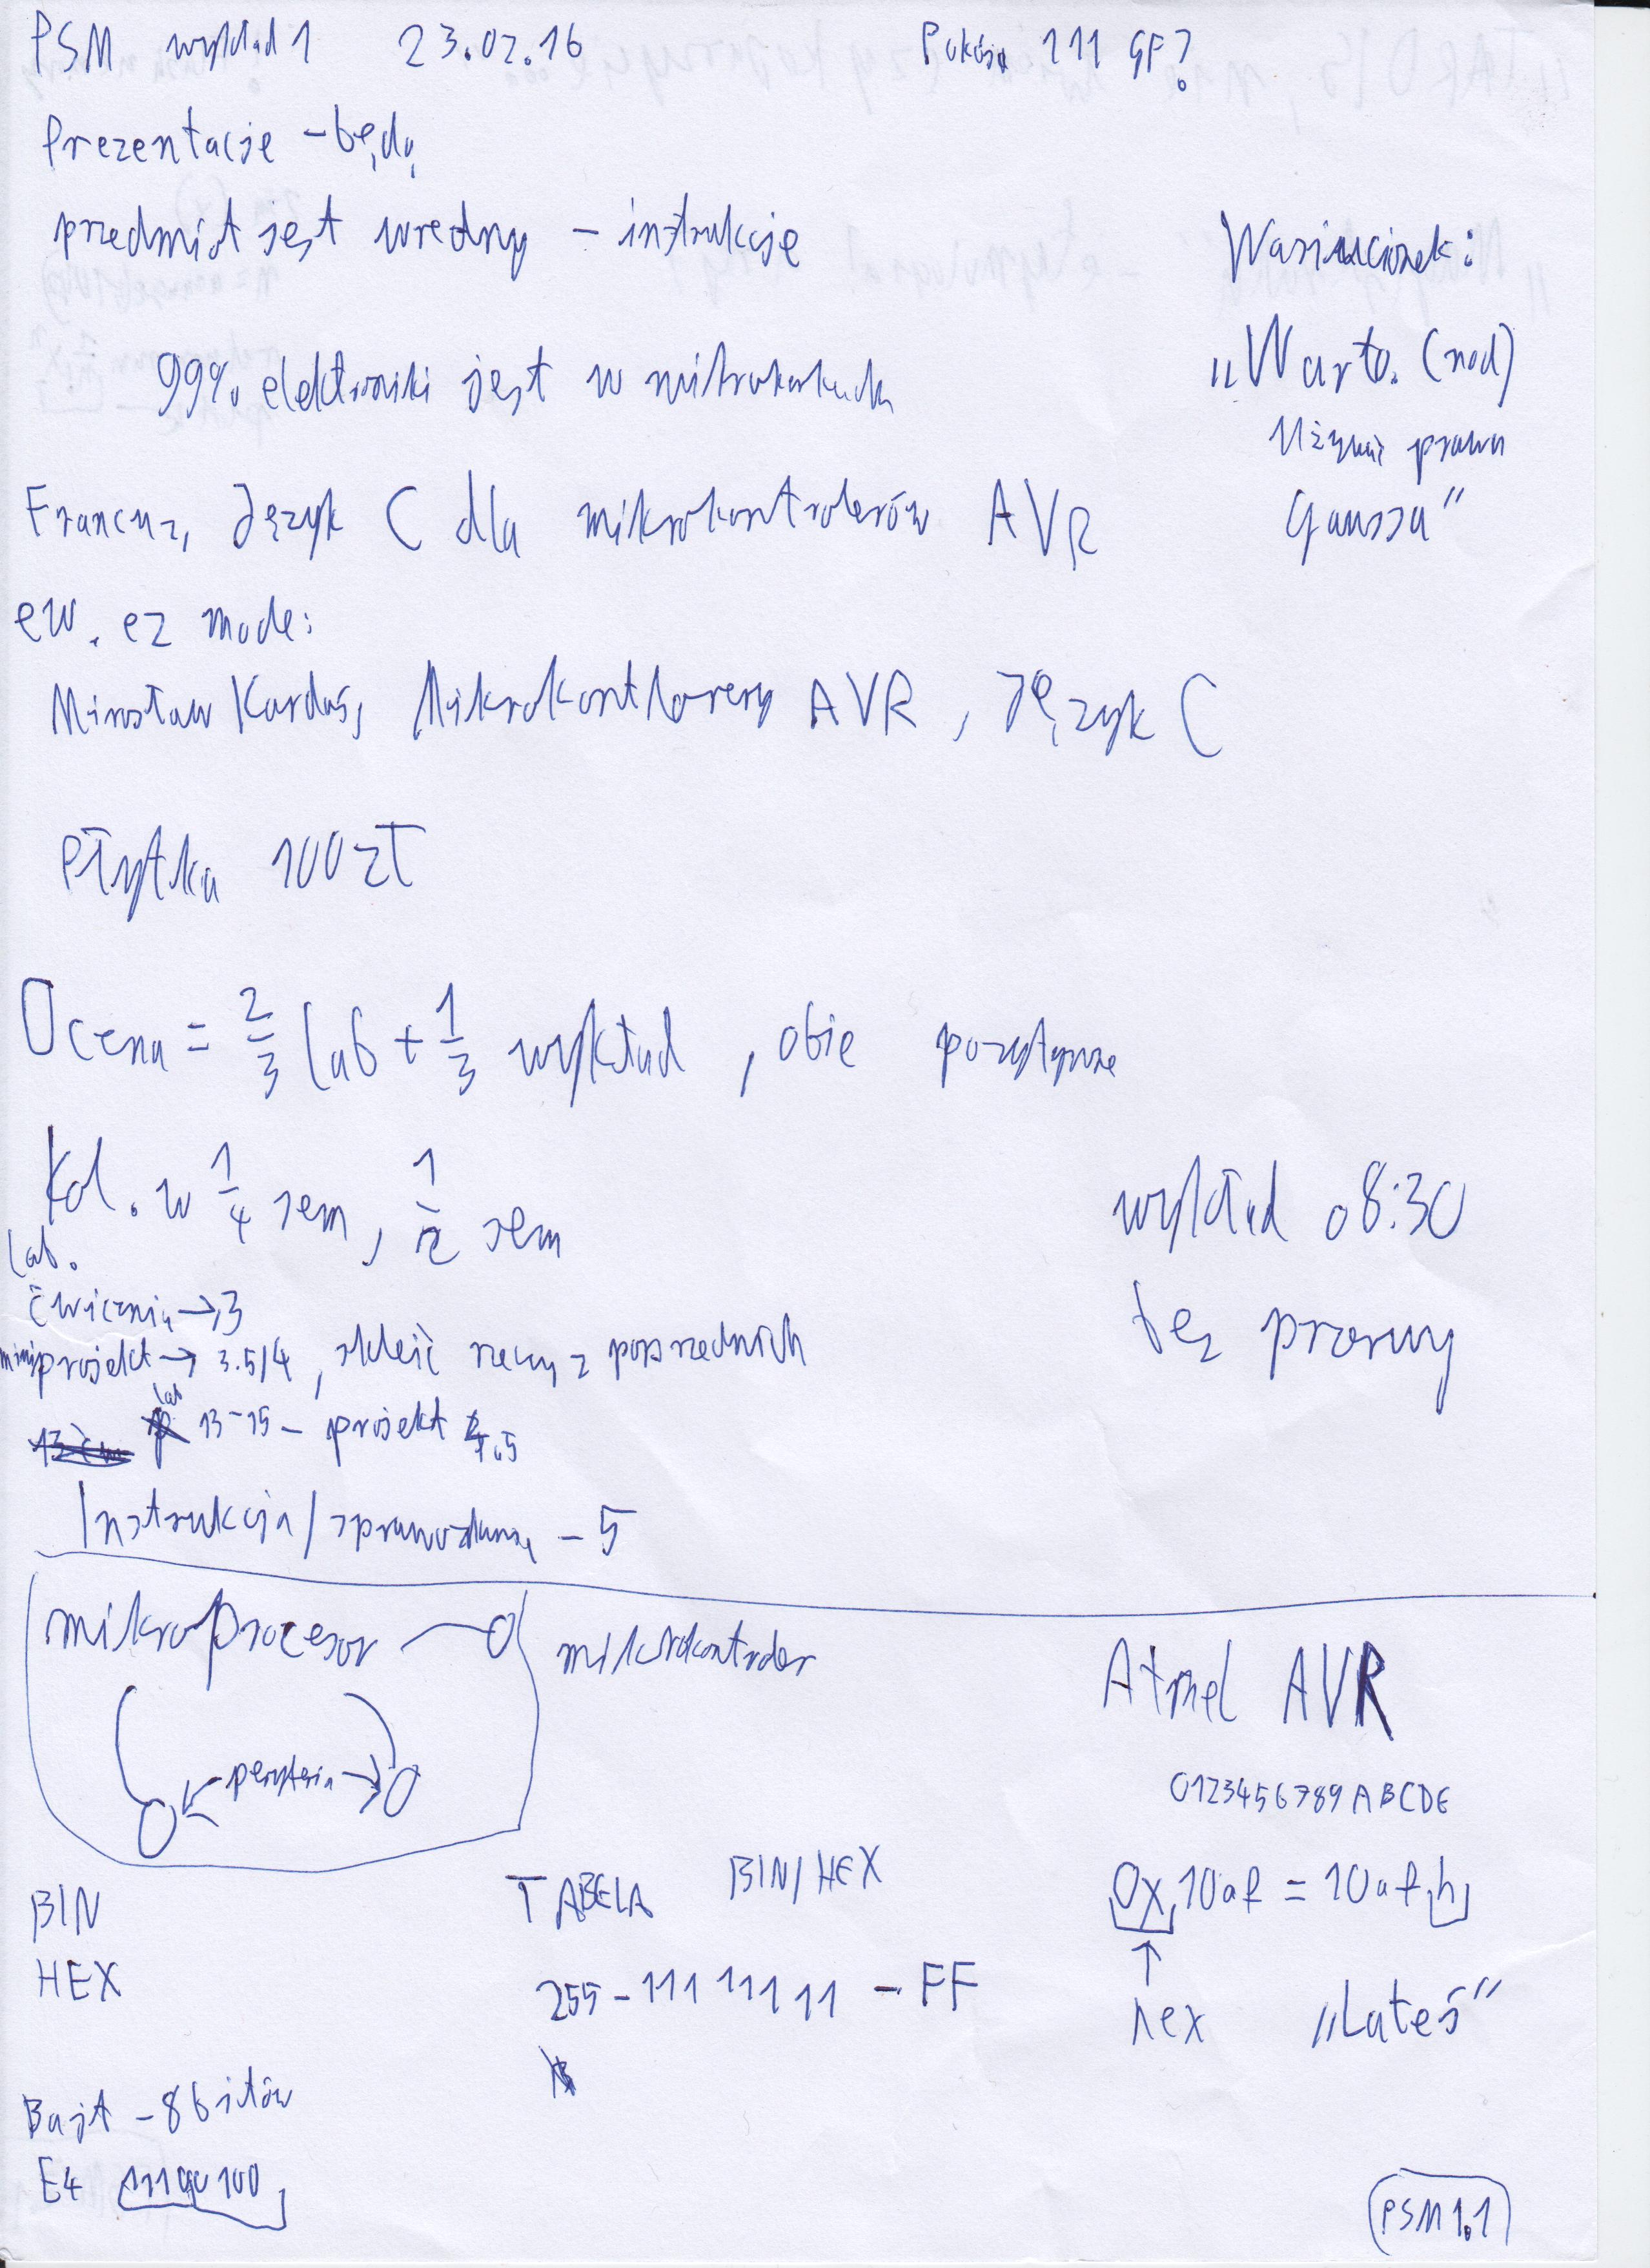 PSM wykład 1 23.02.16 111 GF?
Prezentacje - będą
przedmiot jest wredny - instrukcje
99% elektroniki jest w
„Warto. (nad)
Używać prawa
Gaussa”
Francuz, Język C dla mikrokontrolerów AVR
ew. ez mode:
Mirosław Kardaś, Mikrokontlorery AVR, Język C
Płytka 100 zł
Ocena = 2/3 lab + 1/3 wykład, obie pozytywne
Kol. w 1/4 sem, 1/2 sem
wykład 08:30
bez przerwy
lab.
ćwiczenia → 3
mini projekt → 3.5/4, skleić rzeczy z poprzednich
lab 13-15 - projekt 4.5
Instrukcja/sprawozdania - 5
mikroprocesor
mikrokontroler
peryferia
Atmel AVR
0123456789ABCDE
0x10af = 10afh
hex „Lateś”
BIN
HEX
TABELA BIN/HEX
255 - 11111111 - FF
Bajt - 8 bitów
E4 11100100
PSM1.1